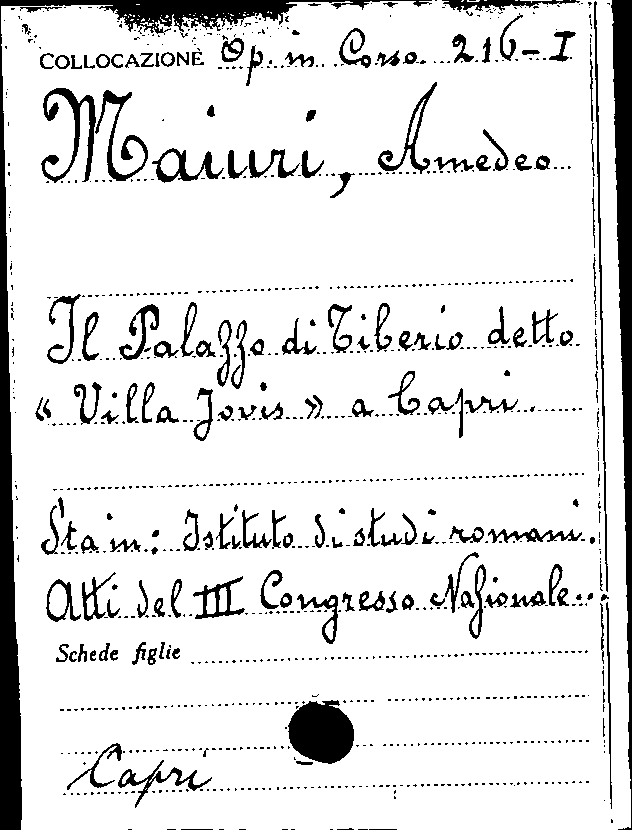 COLLOCAZIONE Op. in Corso. 216-I
Maiuri, Amedeo
Il Palazzo di Tiberio detto
« Villa Jovis » a Capri.
Sta in: Istituto di studi romani.
Atti del III Congresso Nazionale...
Schede figlie
Capri